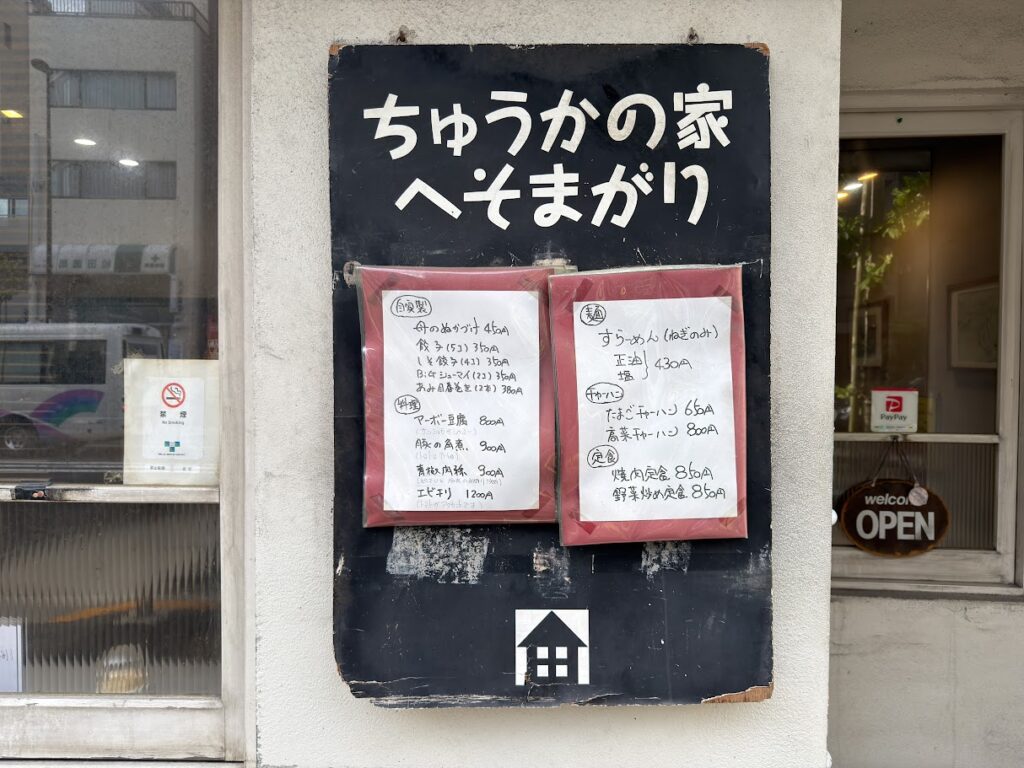 ちゅうかの家
へそまがり
自家製
母のぬかづけ 450円
餃子(5コ) 350円
しそ餃子(4コ) 350円
BiGシューマイ(2コ) 350円
あみ目春巻き(2本) 380円
料理
マーボー豆腐 800円
豚の角煮 900円
青椒肉絲 900円
エビチリ 1200円
麺
すらーめん(ねぎのみ)
正油
塩
430円
チャーハン
たまごチャーハン 650円
高菜チャーハン 800円
定食
焼肉定食 850円
野菜炒め定食 850円
禁煙
No Smoking
PayPay
welcome
OPEN